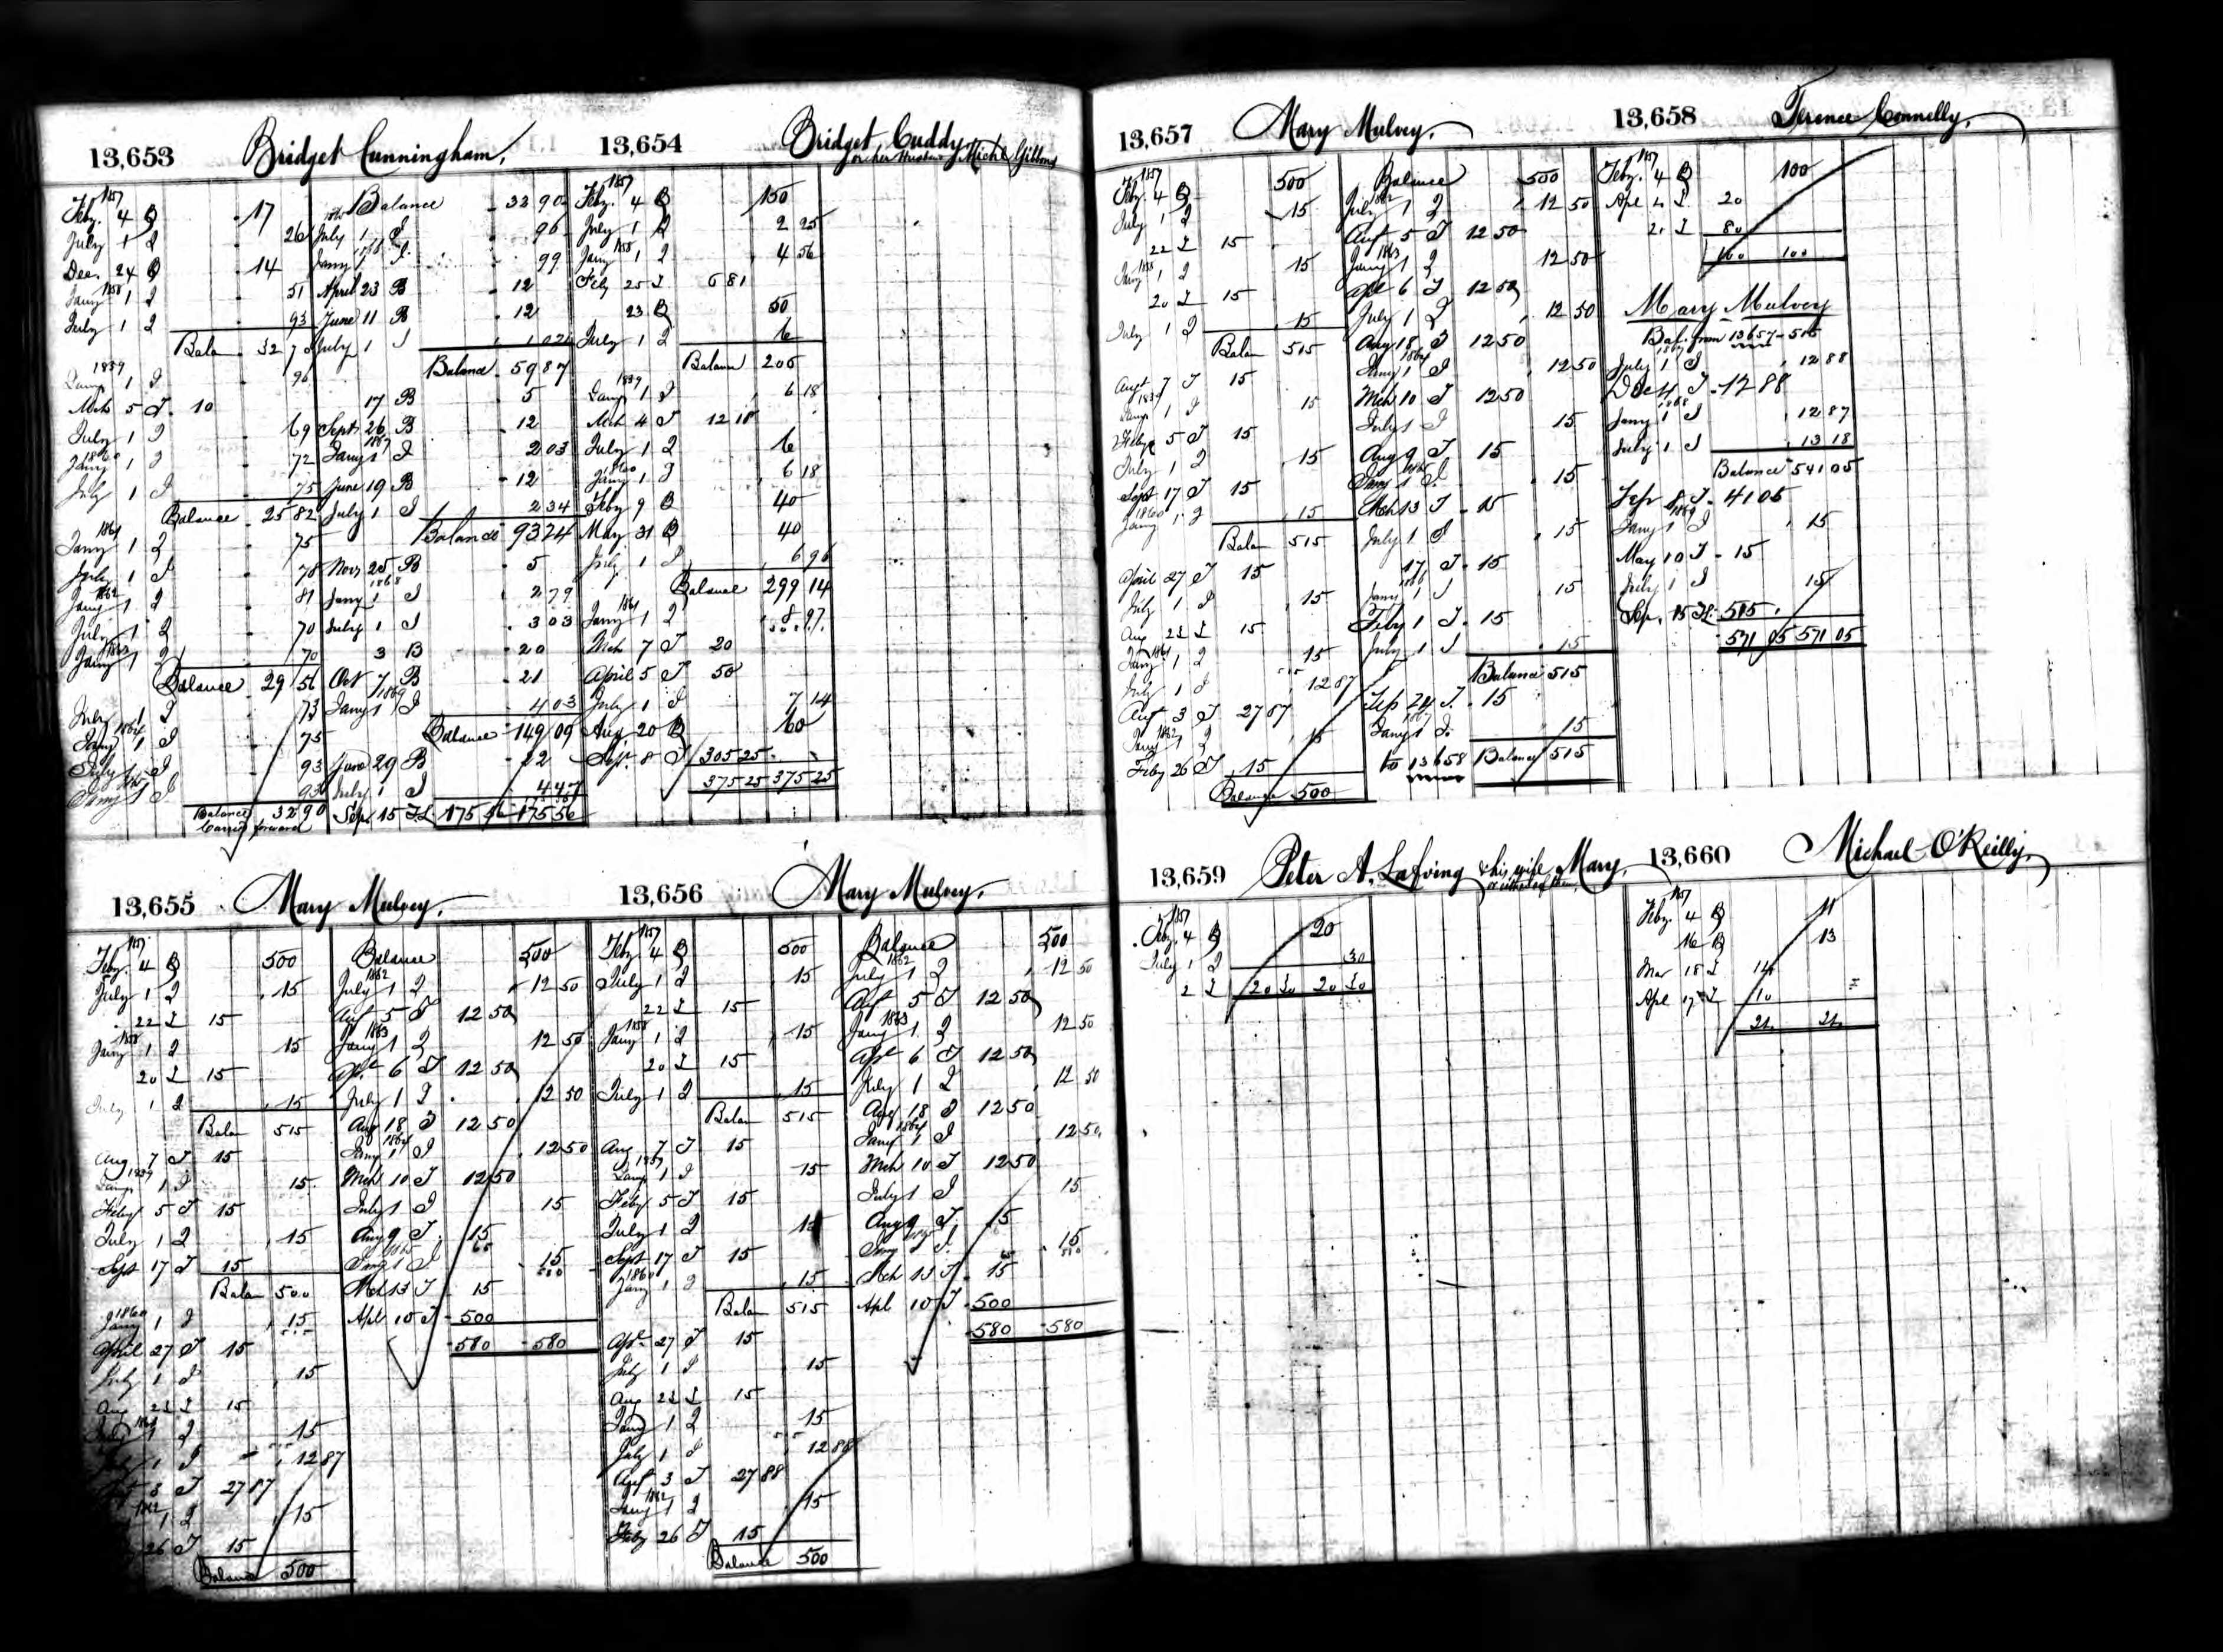 13,653 Bridget Cunningham,
1857
Feby. 4 B 17
July 1 I 26
Dec. 24 B 14
1858
Jany 1 I 51
July 1 I 93
Balan 32 70
1859
Jany 1 I 96
Mch 5 T 10
July 1 I 69
1860
Jany 1 I 72
July 1 I 75
Balance 25 82
1861
Jany 1 I 75
July 1 I 78
1862
Jany 1 I 81
July 1 I 70
1863
Jany 1 I 70
Balance 29 56
July 1 I 73
1864
Jany 1 I 75
July 1 I 93
1865
Jany 1 I 93
Balance 32 90
Carried forward
Balance 32 90
July 1 I 96
Jany 1 I 99
April 23 B 12
June 11 B 12
July 1 I 1 02
Balance 59 87
17 B 5
Sept 26 B 12
1867
Jany 1 I 2 03
June 19 B 12
July 1 I 2 34
Balance 93 24
Novr 25 B 5
1868
Jany 1 I 2 79
July 1 I 3 03
3 B 20
Oct 7 B 21
1869
Jany 1 I 4 03
Balance 149 09
June 29 B 22
July 1 I 4 47
Sep. 15 T 175 56 175 56
13,654 Bridget Cuddy
or her Husband Michl Gibbons
1857
Feby. 4 B 150
July 1 I 2 25
1858
Jany 1 I 4 56
Feby 25 T 6 81
23 B 50
July 1 I 6
Balance 206
1859
Jany 1 I 6 18
Mch 4 T 12 18
July 1 I 6
1860
Jany 1 I 6 18
Feby 9 B 40
May 31 B 40
July 1 I 6 96
Balance 299 14
1861
Jany 1 I 8 97
Mch 7 T 20
April 5 T 50
July 1 I 7 14
Aug 20 B 60
Sept. 8 T 305 25
375 25 375 25
13,655 Mary Mulvey.
1857
Feby. 4 B 500
July 1 I 15
22 T 15
1858
Jany 1 I 15
20 T 15
July 1 I 15
Balan 515
Aug 7 T 15
1859
Jany 1 I 15
Feby 5 T 15
July 1 I 15
Sept 17 T 15
Balan 500
1860
Jany 1 I 15
April 27 T 15
July 1 I 15
Aug 22 T 15
1861
1 I 15
1 I 12 87
3 T 27 87
1862
1 I 15
26 T 15
Balance 500
Balance 500
1862
July 1 I 12 50
Aug 5 T 12 50
1863
Jany 1 I 12 50
Apl 6 T 12 50
July 1 I 12 50
Aug 18 T 12 50
1864
Jany 1 I 12 50
Mch 10 T 12 50
July 1 I 15
Aug 9 T 15
1865
Jany 1 I 15
Mch 13 T 15
Apl 10 T 500
580 580
13,656 Mary Mulvey.
1857
Feby. 4 B 500
July 1 I 15
22 T 15
1858
Jany 1 I 15
20 T 15
July 1 I 15
Balan 515
Aug 7 T 15
1859
Jany 1 I 15
Feby 5 T 15
July 1 I 15
Sept 17 T 15
1860
Jany 1 I 15
Balan 515
Apl 27 T 15
July 1 I 15
Aug 22 T 15
Jany 1 I 15
July 1 I 12 88
Augt 3 T 27 88
1862
Jany 1 I 15
Feby 26 T 15
Balance 500
Balance 500
1862
July 1 I 12 50
Augt 5 T 12 50
1863
Jany 1 I 12 50
Apl 6 T 12 50
July 1 I 12 50
Aug 18 T 12 50
1864
Jany 1 I 12 50
Mch 10 T 12 50
July 1 I 15
Aug 9 T 15
1865
Jany 1 I 15
Mch 13 T 15
Apl 10 T 500
580 580
13,657 Mary Mulvey.
1857
Feby. 4 B 500
July 1 I 15
22 T 15
1858
Jany 1 I 15
20 T 15
July 1 I 15
Balan 515
Augt 7 T 15
1859
Jany 1 I 15
Feby 5 T 15
July 1 I 15
Sept 17 T 15
1860
Jany 1 I 15
Balan 515
April 27 T 15
July 1 I 15
Aug 22 T 15
1861
Jany 1 I 15
July 1 I 12 87
Augt 3 T 27 87
1862
Jany 1 I 15
Feby 26 T 15
Balance 500
Balance 500
1862
July 1 I 12 50
Augt 5 T 12 50
1863
Jany 1 I 12 50
Apl 6 T 12 50
July 1 I 12 50
Aug 18 T 12 50
1864
Jany 1 I 12 50
Mch 10 T 12 50
July 1 I 15
Aug 9 T 15
1865
Jany 1 I 15
Mch 13 T 15
July 1 I 15
17 T 15
1866
Jany 1 I 15
Feby 1 T 15
July 1 I 15
Balance 515
Sep 24 T 15
1867
Jany 1 I 15
to 13658 Balance 515
13,658 Terence Connelly.
1857
Feby. 4 B 100
Apl 4 T 20
21 T 80
100 100
Mary Mulvey
Bal. from 13657 - 515
1867
July 1 I 12 88
Dec 4 T 12 88
1868
Jany 1 I 12 87
July 1 I 13 18
Balance 541 05
Sep 8 T 41 05
1869
Jany 1 I 15
May 10 T 15
July 1 I 15
Sep. 15 T 515
571 05 571 05
13,659 Peter A. Lafving & his wife Mary,
or either of them
1857
Feby. 4 B 20
July 1 I 30
2 T 20 30 20 30
13,660 Michael O'Reilly.
1857
Feby. 4 B 11
16 B 13
Mar 18 T 14
Apl 17 T 10
24 24